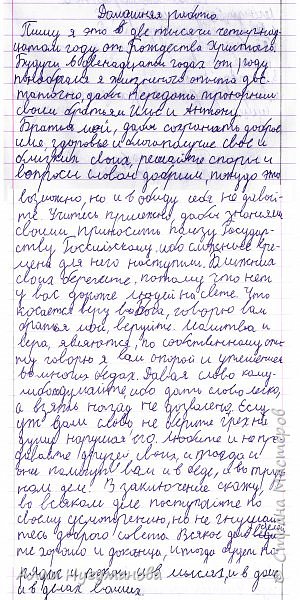 Домашняя работа
Пишу я это в две тысячи четырнад-
цатом году от рождества Христового.
Будучи в двенадцатом годах от роду
понабрался я жизненного опыта дос-
таточно, дабы передать троюродним
своим братьям Илие и Антону.
Братья мои, дабы сохранить доброе
имя, здоровье и благополучие свое и
близких своих, решайте споры и
вопросы словом добрым, покуда это
возможно, но и в обиду себя не давай-
те. Учитесь прилежно, дабы знаниями
своими приносить пользу Государ-
ству Российскому, ибо сложные вре-
мена для него наступили. Ближних
своих берегите, потому что нет
у вас дороже людей на свете. Что
касается веры в Бога, говорю вам
братья мои, веруйте. Молитва и
вера, являются, по собственному опы-
ту говорю я вам опорой и утешением
во многих бедах. Давая слово кому-
либо думайте, ибо дать слово легко,
а взять назад не дозволено. Если
уж дали слово, не берите греха на
душу нарушая его. Любите и не пре-
давайте друзей своих, и тогда и
они помогут вам и в беде, и в труд-
ном деле. В заключение скажу,
во всяком деле поступайте по
своему усмотрению, но не гнушай-
тесь доброго совета. Всякое дело ведай-
те здраво и до конца, и тогда будет по-
рядок и покой и в мыслях, и в доме
и в делах ваших.